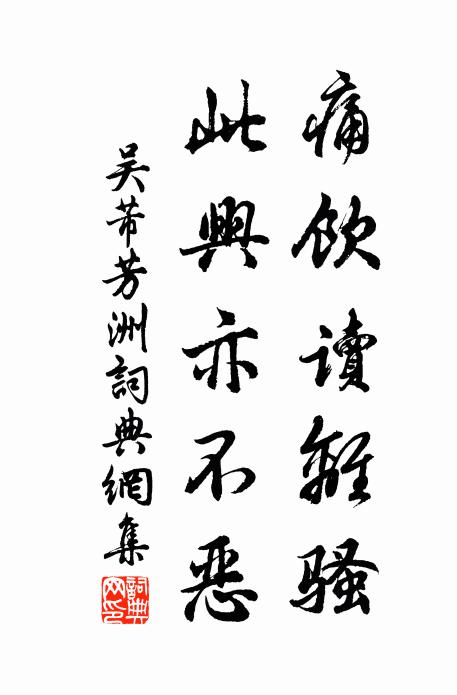 痛飲讀離騷
此興亦不惡
吳芾芳洲詞典網集
詞典網印